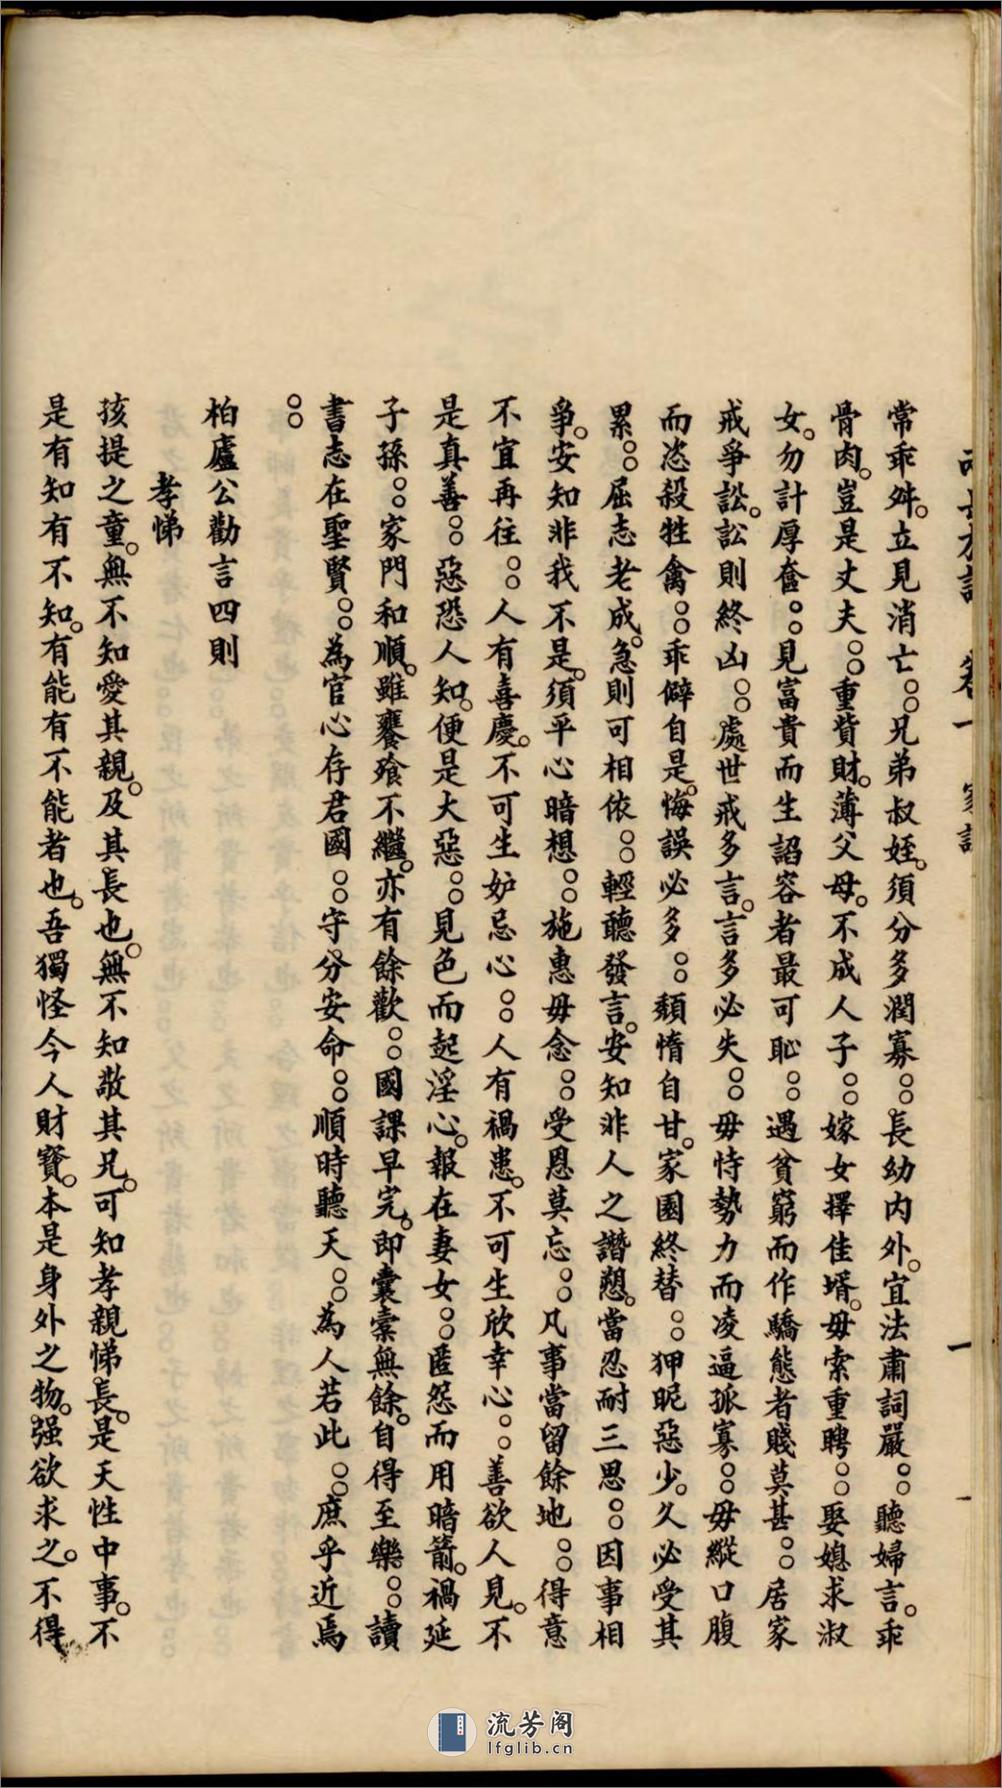 常乖舛。立見消亡。○○兄弟叔姪。須分多潤寡。○○長幼內外。宜法肅詞嚴。○○聽婦言。乖
骨肉。豈是丈夫。○○重貲財。薄父母。不成人子。○○嫁女擇佳壻。毋索重聘。○○娶媳求淑
女。勿計厚奩。○○見富貴而生諂容者最可恥。○○遇貧窮而作驕態者賤莫甚。○○居家
戒爭訟。訟則終凶。○○處世戒多言。言多必失。○○毋恃勢力而凌逼孤寡。○○毋縱口腹
而恣殺牲禽。○○乖僻自是。悔誤必多。○○頽惰自甘。家園終替。○○狎昵惡少。久必受其
累。○○屈志老成。急則可相依。○○輕聽發言。安知非人之譖愬。當忍耐三思。○○因事相
爭。安知非我不是。須平心暗想。○○施惠毋念。○○受恩莫忘。○○凡事當留餘地。○○得意
不宜再往。○○人有喜慶。不可生妒忌心。○○人有禍患。不可生欣幸心。○○善欲人見。不
是真善。○○惡恐人知。便是大惡。○○見色而起淫心。報在妻女。○○匿怨而用暗箭。禍延
子孫。○○家門和順。雖饔飱不繼。亦有餘歡。○○國課早完。即囊橐無餘。自得至樂。○○讀
書志在聖賢。○○為官心存君國。○○守分安命。○○順時聽天。○○為人若此。○○庶乎近焉
○○
柏廬公勸言四則
孝悌
孩提之童。無不知愛其親。及其長也。無不知敬其兄。可知孝親悌長。是天性中事。不
是有知有不知。有能有不能者也。吾獨怪今人財寶。本是身外之物。强欲求之。不得
流芳阁
lfglib.cn